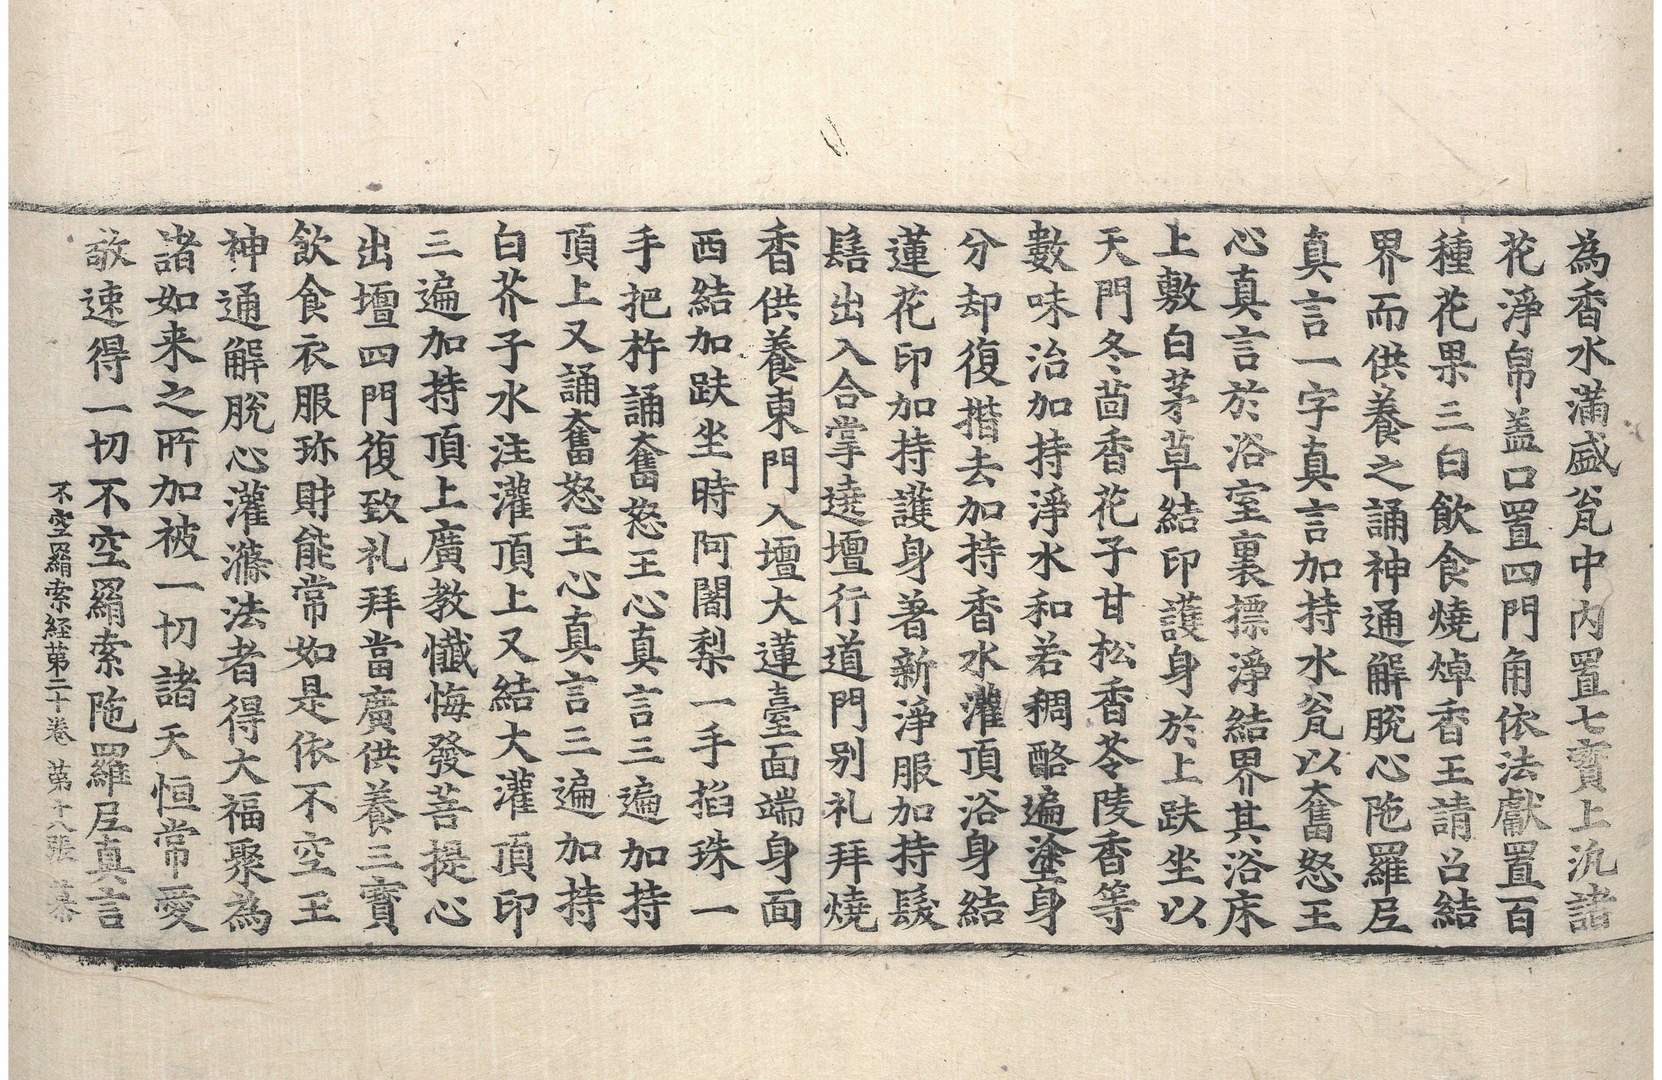 為香水滿盛瓮中內置七寶上汎諸
花淨帛盖口置四門角依法獻置百
種花果三白飲食燒焯香王請召結
界而供養之誦神通解脫心陁羅尼
真言一字真言加持水瓮以奮怒王
心真言於浴室裏摽淨結界其浴床
上敷白茅草結印護身於上趺坐以
天門冬茴香花子甘松香苓陵香等
數味治加持淨水和若稠酪遍塗身
分却復揩去加持香水灌頂浴身結
蓮花印加持護身著新淨服加持髮
髻出入合掌遶壇行道門別礼拜燒
香供養東門入壇大蓮臺面端身面
西結加趺坐時阿闍梨一手掐珠一
手把杵誦奮怒王心真言三遍加持
頂上又誦奮怒王心真言三遍加持
白芥子水注灌頂上又結大灌頂印
三遍加持頂上廣教懺悔發菩提心
出壇四門復致礼拜當廣供養三寶
飲食衣服珎財能常如是依不空王
神通解脫心灌滌法者得大福聚為
諸如来之所加被一切諸天恒常愛
敬速得一切不空羂索陁羅尼真言
不空羂索経第二十卷 第十八張 慕